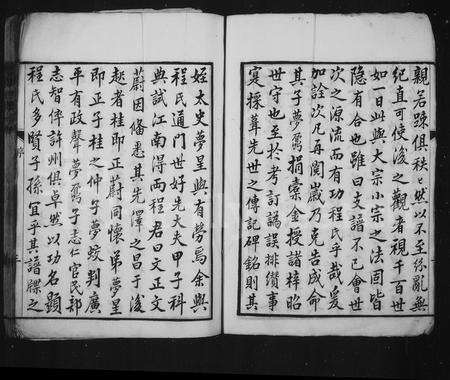 親若疎俱秩秩然以不至紛亂無
紀直可使後之觀者視千百世
如一日此與大宗小宗之法固皆
隐有合也雖曰支譜不已會世
次之源流而有功程氏乎哉爰
加詮次凡再閱歲乃克告成命
其子夢鴈捐橐金授諸梓昭
世守也至於考訂譌誤排纘事
寔採葺先世之傳記碑銘則其
姪太史夢星與有勞焉余與
程氏通門世好先大夫甲子科
典試江南得兩程君曰文正文
蔚因偹悉其先澤之昌于後
起者桂即正蔚同懷婿夢星
即正子桂之仲子夢蛟判廣
平有政聲夢鴈子志仁官民部
志智倅許州俱卓然以功名顯
程氏多賢子孫宜乎其譜牒之